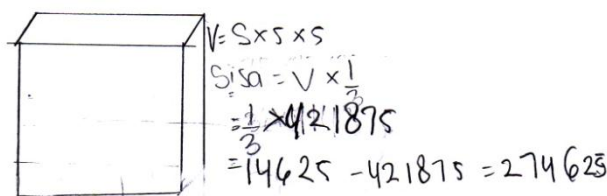 V= S × s × s
Sisa = V × 1/3
= 1/3 × 421875
= 14625 - 421875 = 274625